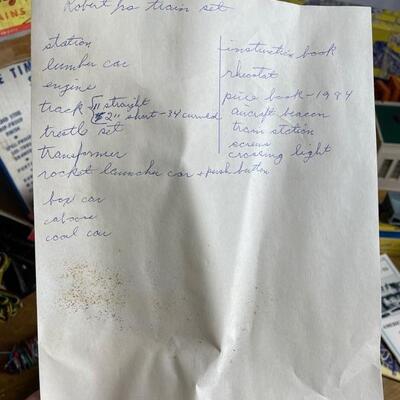 Robert Jrs train set
station
lumber car
engine
track - 11 straight
2" short - 34 curved
trestle set
transformer
rocket launcher car + push button
box car
caboose
coal car
instruction book
rheostat
price book - 1984
aircraft beacon
train station
screws
crossing light